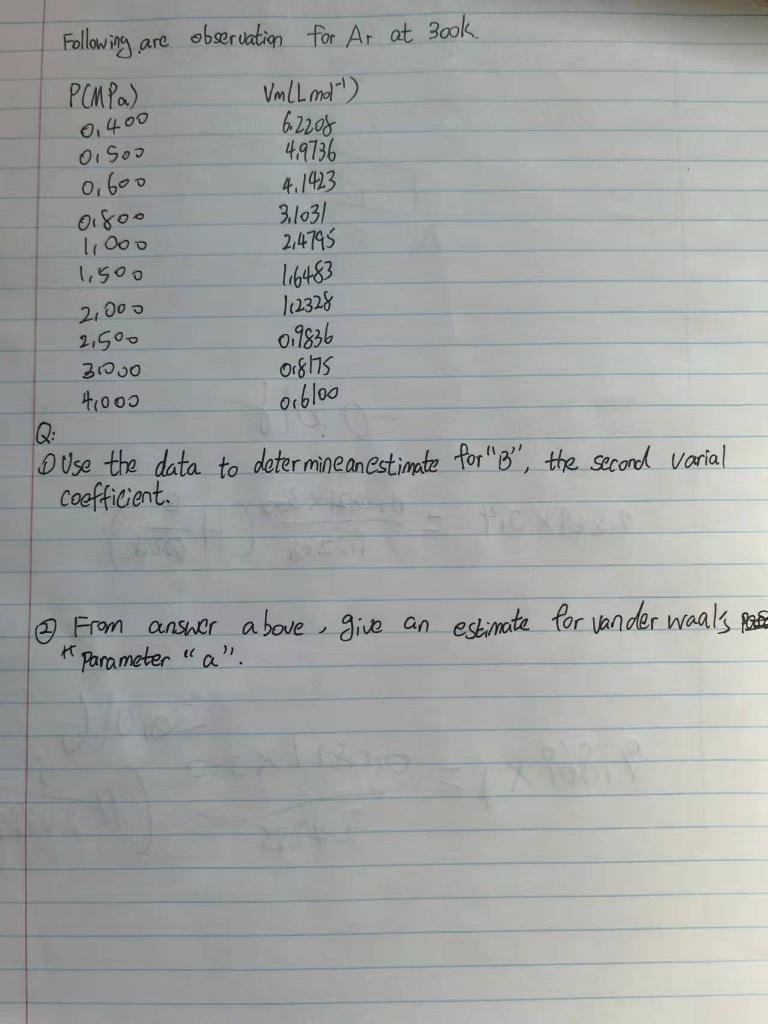 Following are observation for Ar at 300k.
P(MPa) Vm(Lmol⁻¹)
0.400 6.2208
0.500 4.9736
0.600 4.1423
0.800 3.1031
1.000 2.4795
1.500 1.6483
2.000 1.2328
2.500 0.9836
3.000 0.8175
4.000 0.6100
Q:
① Use the data to determine an estimate for "B", the second varial
coefficient.
② From answer above, give an estimate for van der waal's
parameter "a".